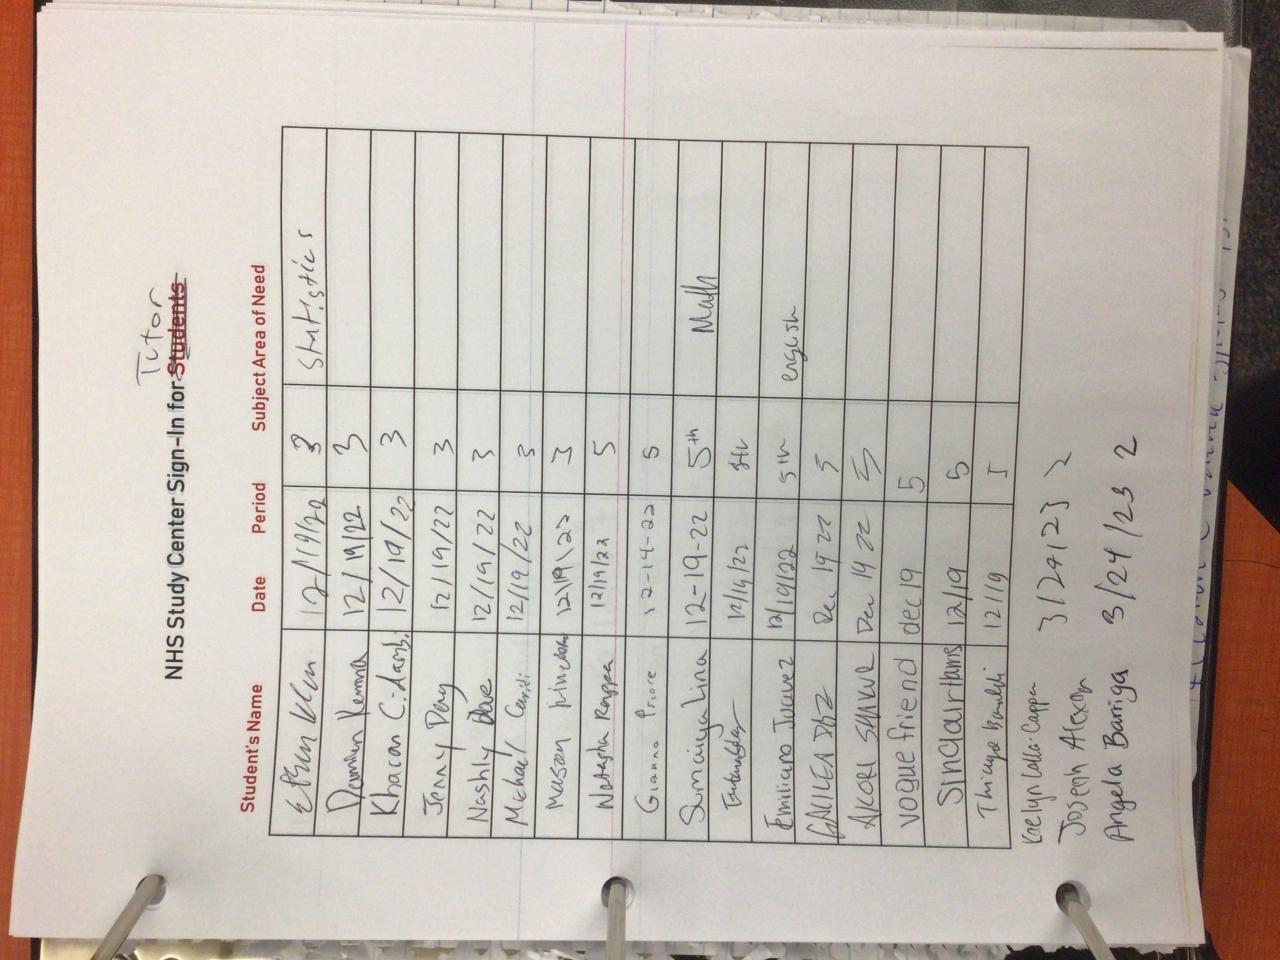 Tutor
NHS Study Center Sign-In for Students
Student's Name Date Period Subject Area of Need
12/19/22 3 Statistics
12/19/22 3
Khacari 12/19/22 3
Jenny Day 12/19/22 3
Nashly 12/19/22 3
Michael 12/19/22 3
Mason 12/19/22 3
Natasha 12/19/22 5
Gianna Priore 12-14-22 5
Sumaiya Lina 12-19-22 5th Math
5th
Emiliano 12/19/22 5th english
GALILEA Dec 19 22 5
AKORI SHAKUR Dec 19 22 5
vogue friend dec 19 5
Sinclair Harris 12/19 5
Thiago 12/19 5
Kaelyn
Joseph 3/24/23 2
Angela Barriga 3/24/23 2